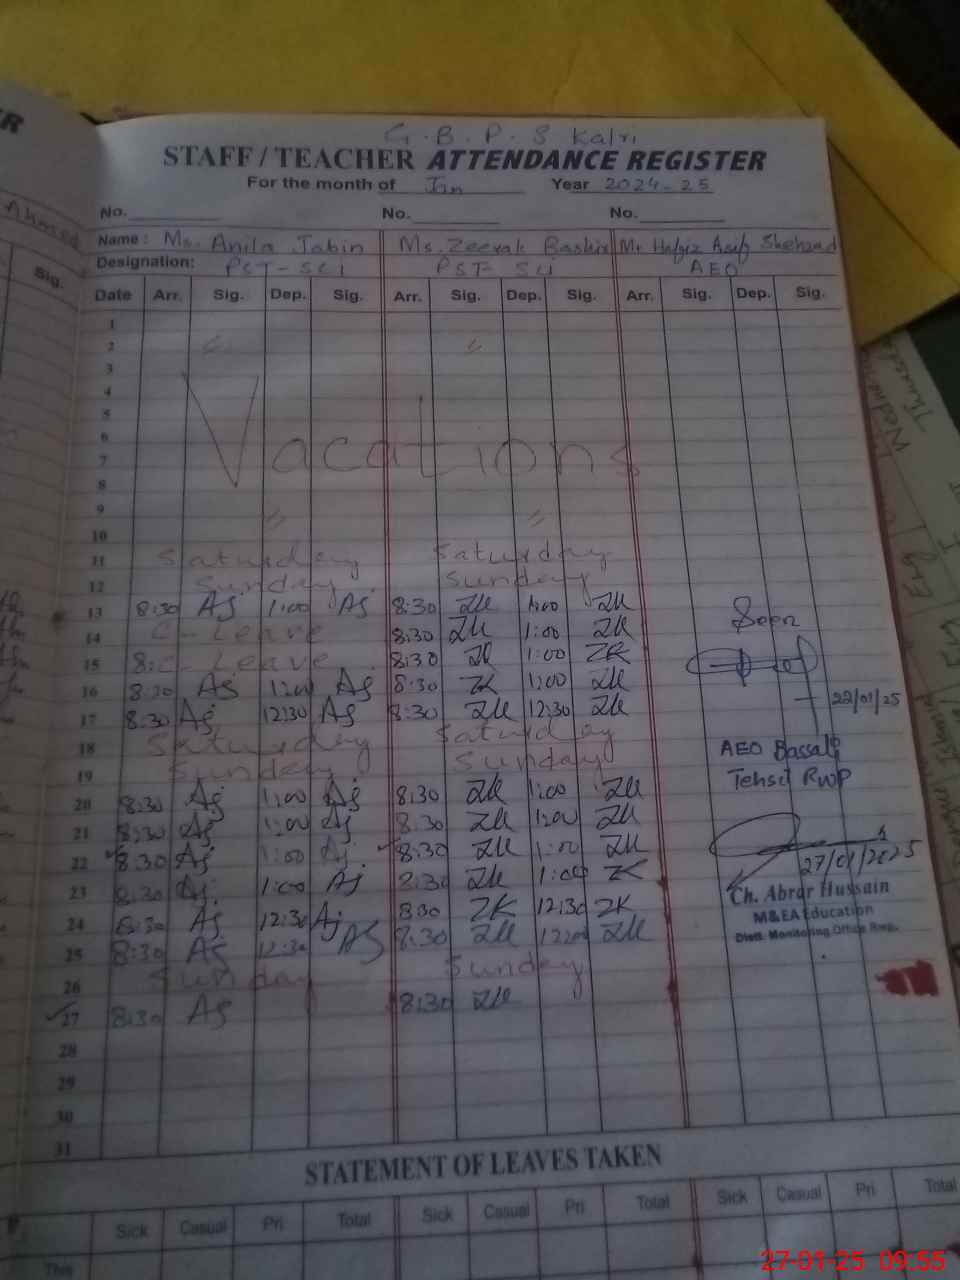 G.B.P.S Kalri
STAFF / TEACHER ATTENDANCE REGISTER
For the month of Jan Year 2024-25
No. No. No.
Ahmed
Name: Ms. Anila Jabin Ms. Zeevak Mr Hafiz Asif Shehzad
Designation: PST-SCI PST-Sci AEO
Sig.
Date Arr. Sig. Dep. Sig. Arr. Sig. Dep. Sig. Arr. Sig. Dep. Sig.
1
2
3
4
5
6
Vacations
7
8
9
10
11 Saturday Saturday
12 Sunday Sunday
13 8:30 AJ 1:00 AJ 8:30 ZK 1:00 ZK
Seen
14 C-Leave 8:30 ZK 1:00 ZK
15 8: C-Leave 8:30 ZK 1:00 ZK
16 8:30 AJ 1:00 AJ 8:30 ZK 1:00 ZK
22/01/25
17 8:30 AJ 12:30 AJ 8:30 ZK 12:30 ZK
18 Saturday Saturday
AEO Bassali
19 Sunday Sunday
Tehsil RWP
20 8:30 AJ 1:00 AJ 8:30 ZK 1:00 ZK
21 8:30 AJ 1:00 AJ 8:30 ZK 1:00 ZK
22 8:30 AJ 1:00 AJ 8:30 ZK 1:00 ZK
27/01/2025
23 8:30 AJ 1:00 AJ 8:30 ZK 1:00 ZK
Ch. Abrar Hussain
24 8:30 AJ 12:30 AJ 8:30 ZK 12:30 ZK
M&EA Education
25 8:30 AJ 12:30 AJ 8:30 ZK ZK
Distt. Monitoring Office Rwp.
26 Sunday Sunday
27 8:30 AJ 8:30 ZK
28
29
30
31
STATEMENT OF LEAVES TAKEN
Sick Casual Pri Total Sick Casual Pri Total Sick Casual Pri Total
This
27-01-25 09:55